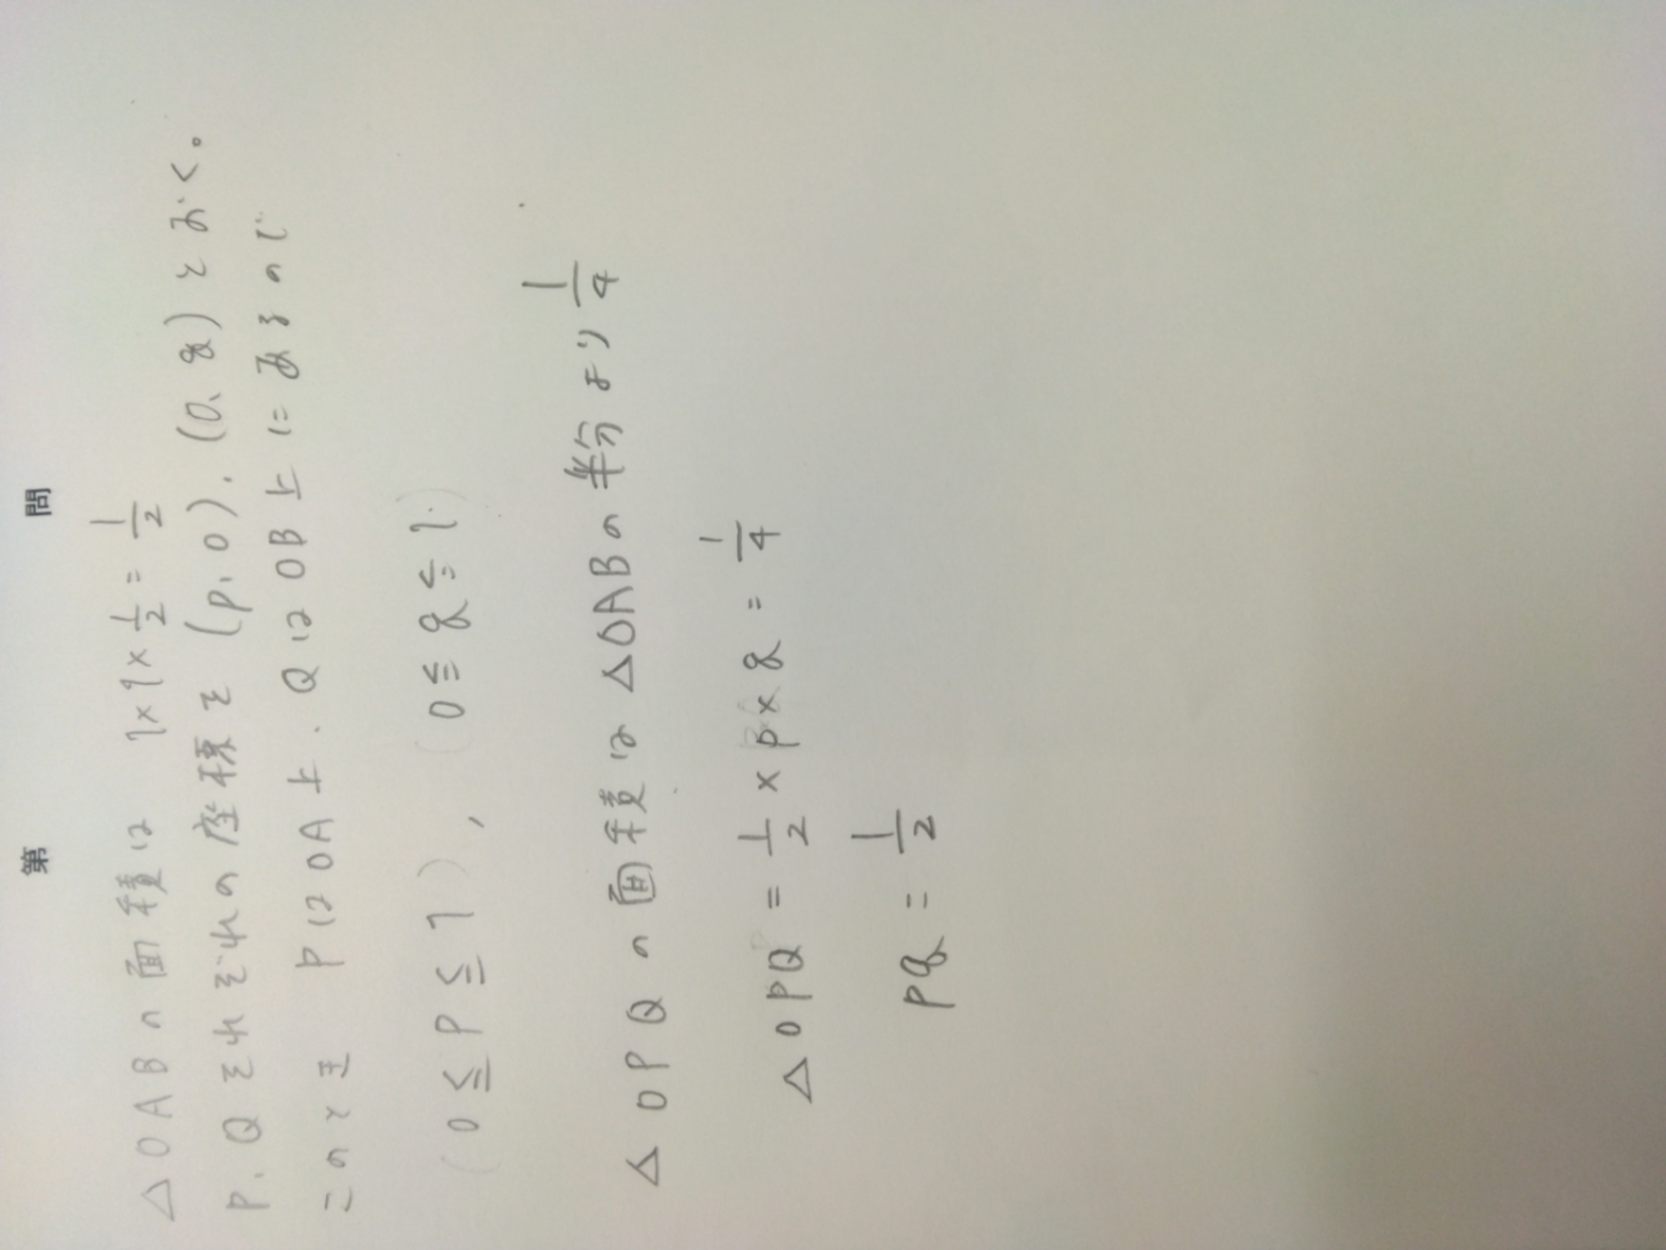 第 問
△OABの面積は 1×1×1/2=1/2
P.Qそれぞれの座標を(p,0).(0,q)とおく。
このとき PはOA上.QはOB上にあるので
(0≦p≦1), (0≦q≦1)
△OPQの面積は△OABの半分より1/4
△OPQ=1/2×p×q=1/4
pq=1/2